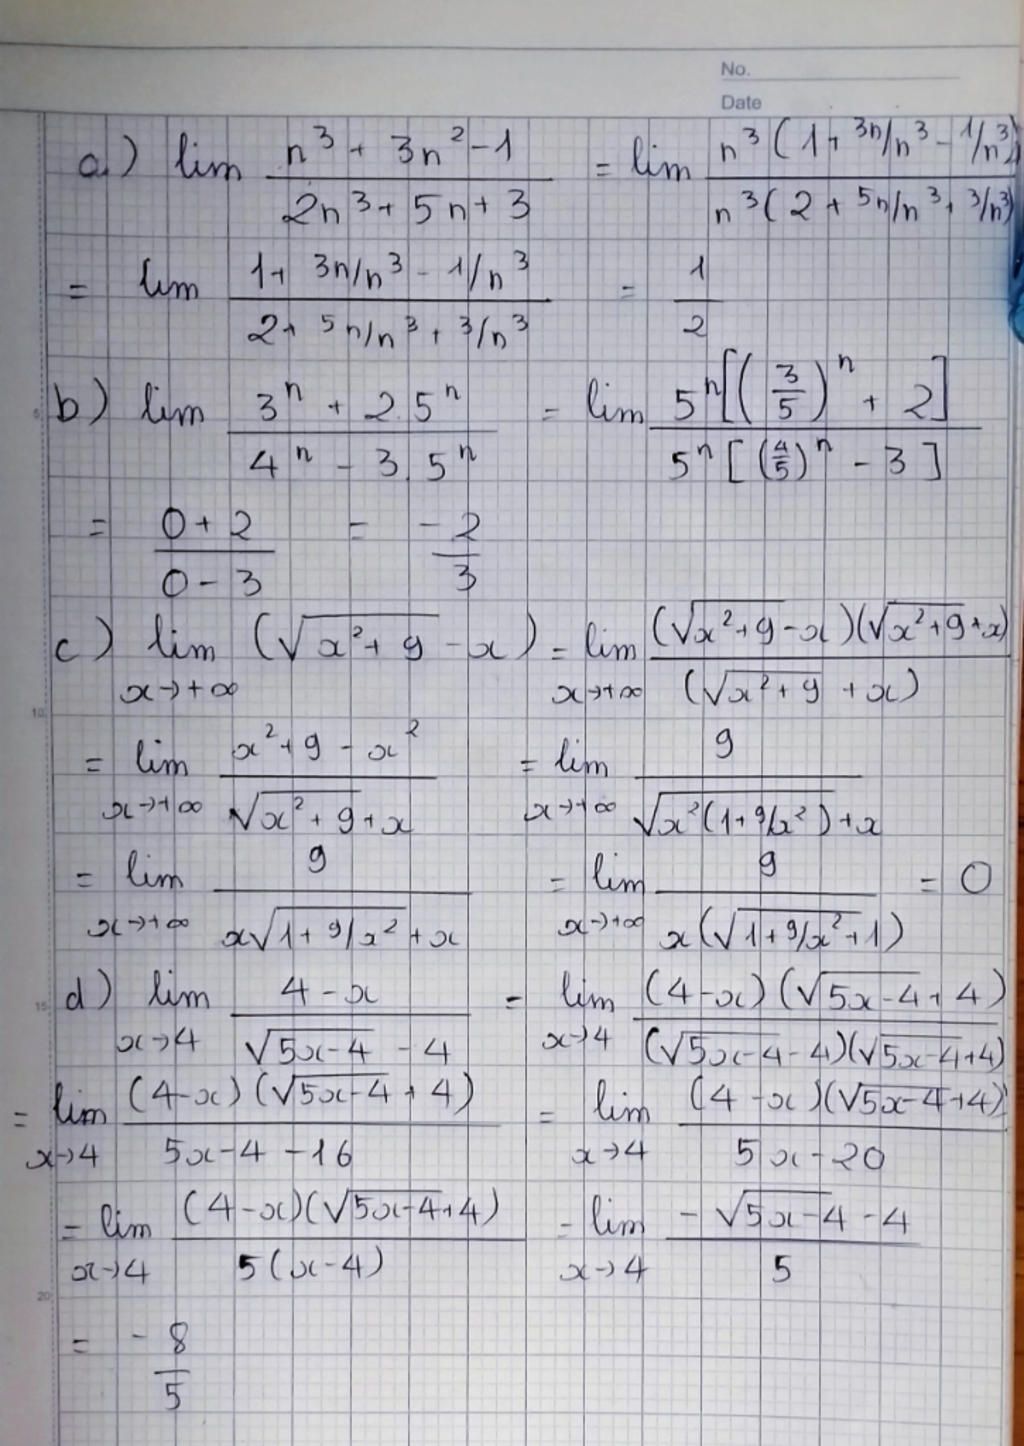 No.
Date
a) lim (n³ + 3n² - 1)/(2n³ + 5n + 3) = lim (n³(1 + 3n/n³ - 1/n³))/(n³(2 + 5n/n³ + 3/n³))
= lim (1 + 3n/n³ - 1/n³)/(2 + 5n/n³ + 3/n³) = 1/2
b) lim (3ⁿ + 2.5ⁿ)/(4ⁿ - 3.5ⁿ) = lim (5ⁿ[(3/5)ⁿ + 2])/(5ⁿ[(4/5)ⁿ - 3])
= (0 + 2)/(0 - 3) = -2/3
c) lim x→+∞ (√(x² + 9) - x) = lim x→+∞ ((√(x² + 9) - x)(√(x² + 9) + x))/(√(x² + 9) + x)
= lim x→+∞ (x² + 9 - x²)/(√(x² + 9) + x) = lim x→+∞ 9/(√(x²(1 + 9/x²)) + x)
= lim x→+∞ 9/(x√(1 + 9/x²) + x) = lim x→+∞ 9/(x(√(1 + 9/x² + 1))) = 0
d) lim x→4 (4 - x)/(√(5x - 4) - 4) = lim x→4 ((4 - x)(√(5x - 4) + 4))/((√(5x - 4) - 4)(√(5x - 4) + 4))
= lim x→4 ((4 - x)(√(5x - 4) + 4))/(5x - 4 - 16) = lim x→4 ((4 - x)(√(5x - 4) + 4))/(5x - 20)
= lim x→4 ((4 - x)(√(5x - 4) + 4))/(5(x - 4)) = lim x→4 (-√(5x - 4) - 4)/5
= -8/5
5
10
15
20